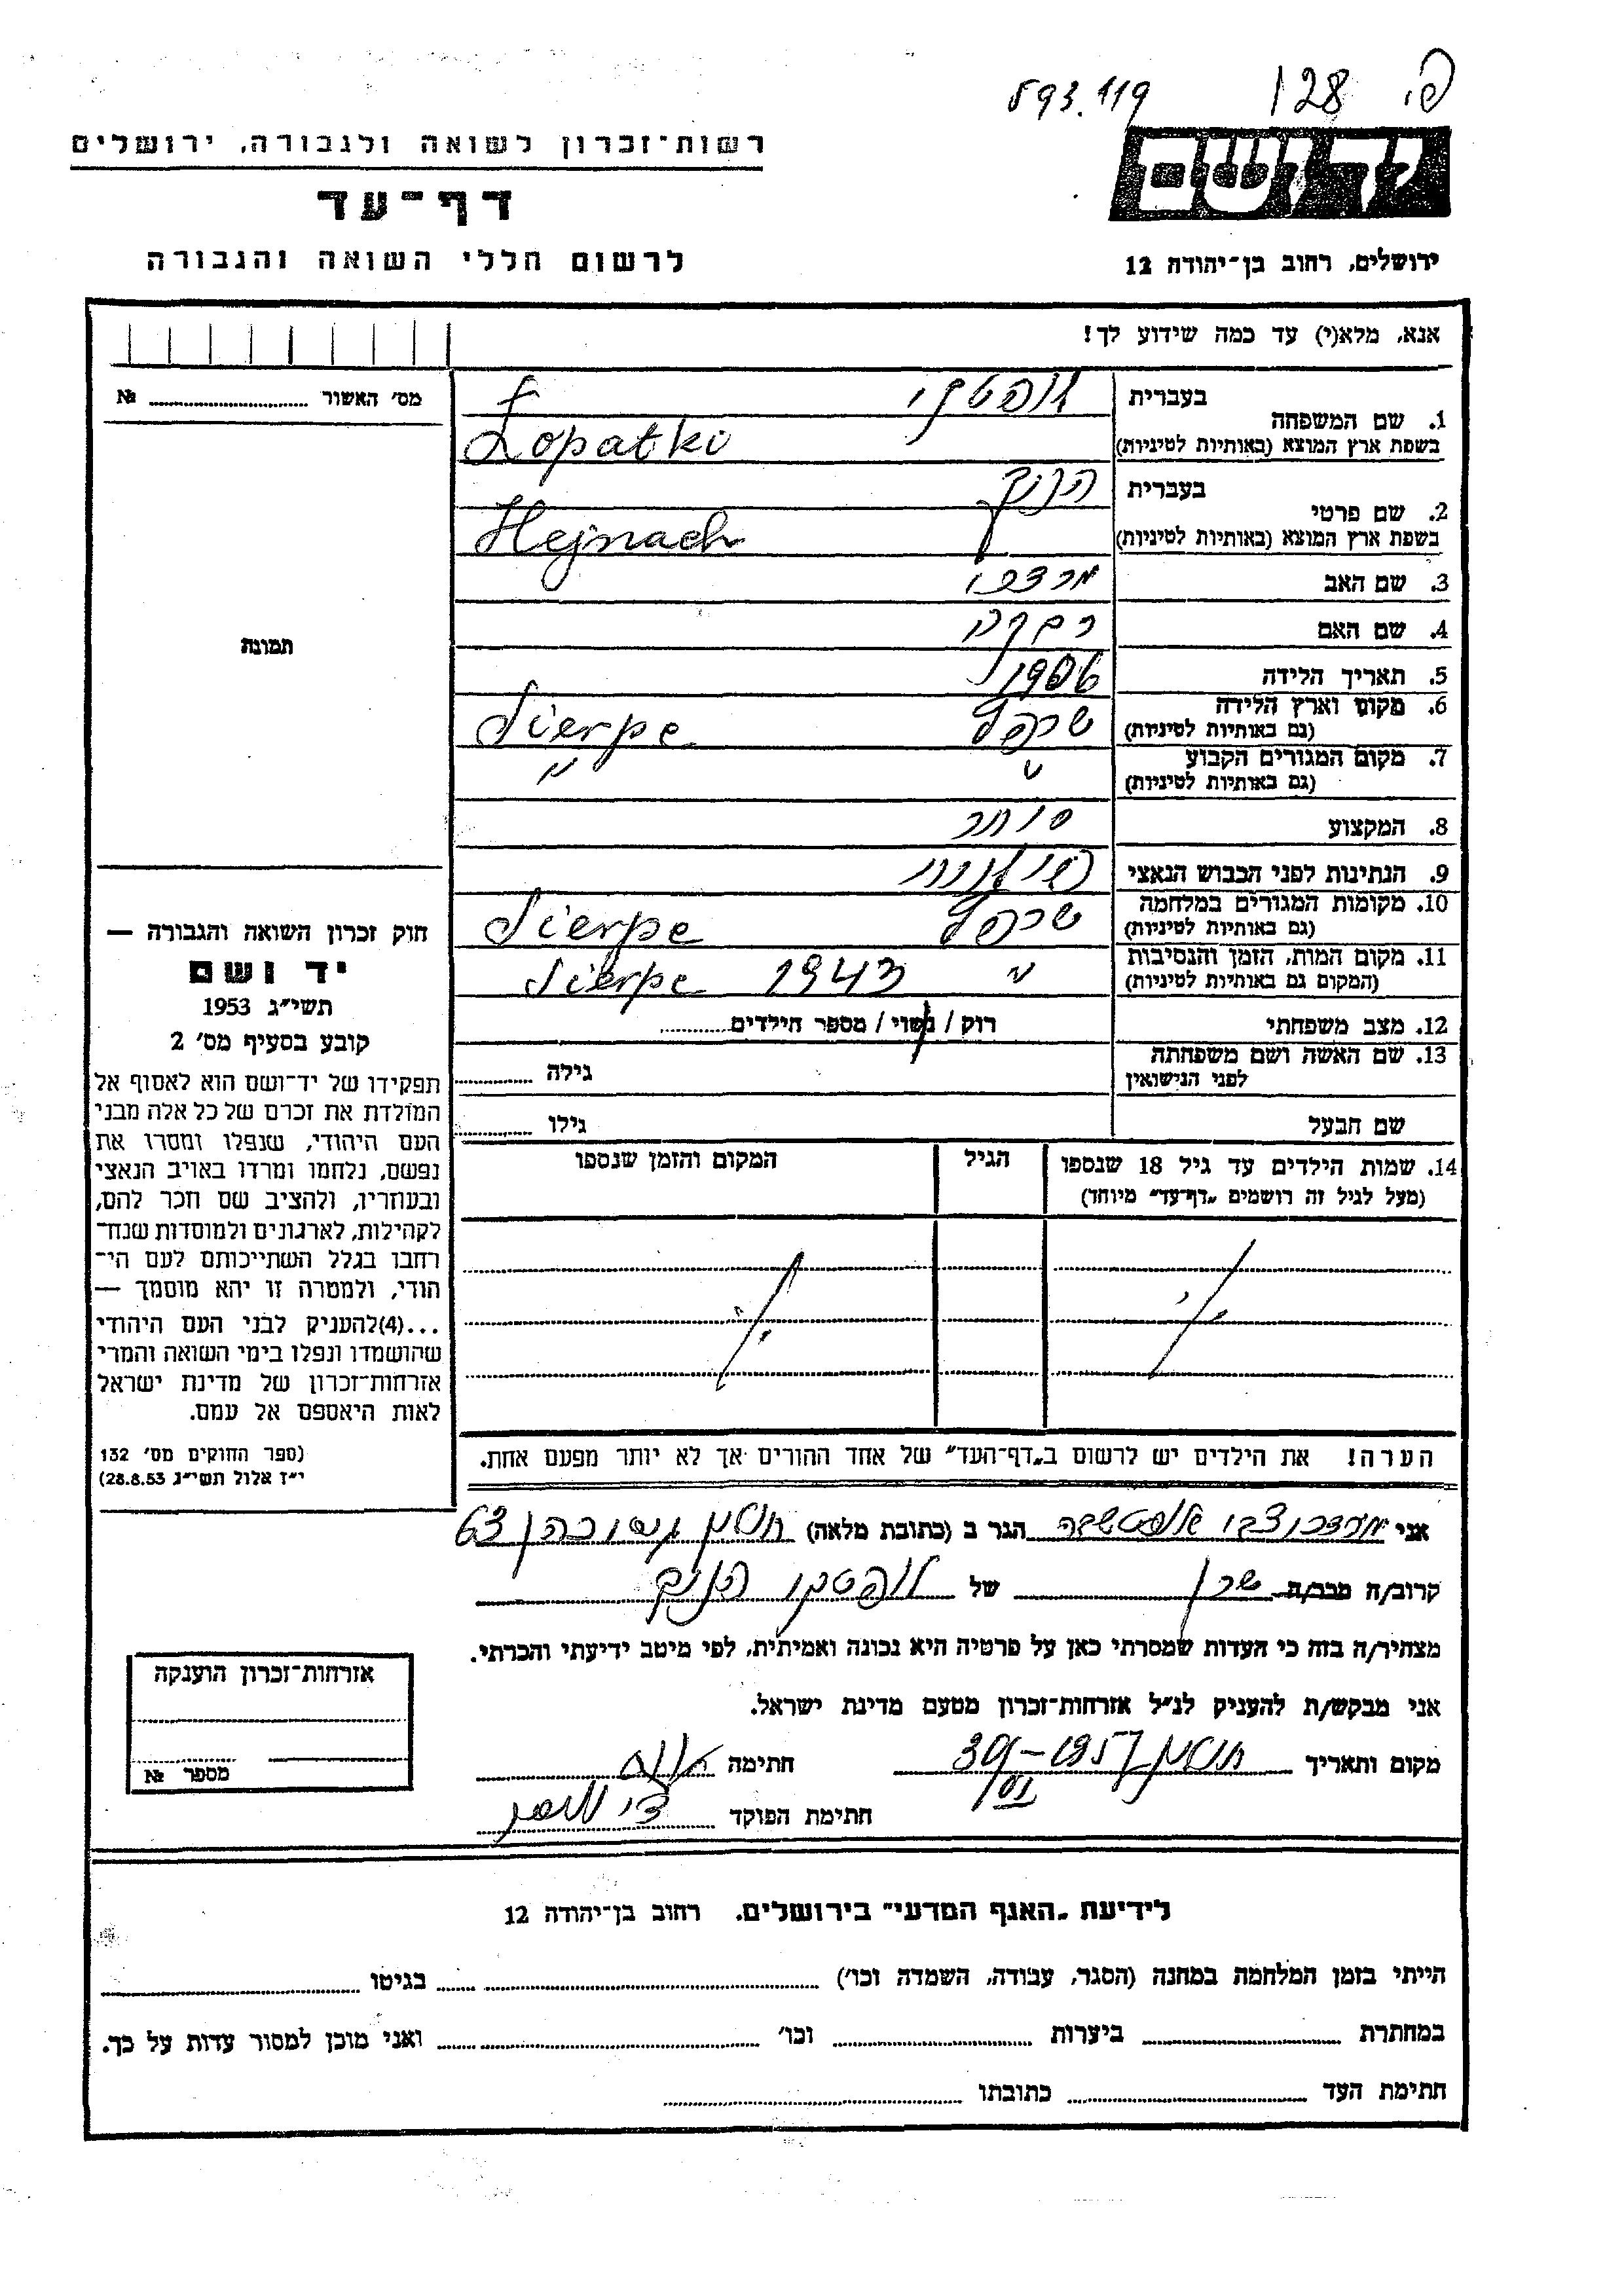 פי 128 893.119
יד ושם
ירושלים, רחוב בן־יהודה 12
רשות־זכרון לשואה ולגבורה, ירושלים
דף־עד
לרשום חללי השואה והגבורה
אנא, מלא(י) עד כמה שידוע לך!
מס׳ האשור №
1. שם המשפחה בעברית לופטקי
בשפת ארץ המוצא (באותיות לטיניות) Łopatki
2. שם פרטי בעברית הנוך
בשפת ארץ המוצא (באותיות לטיניות) Hejnach
3. שם האב מרדכי
4. שם האם רבקה
5. תאריך הלידה 1906
6. מקום וארץ הלידה שרפץ Sierpc
(גם באותיות לטיניות)
7. מקום המגורים הקבוע " "
(גם באותיות לטיניות)
8. המקצוע סוחר
9. הנתינות לפני הכבוש הנאצי פולנית
10. מקומות המגורים במלחמה שרפץ Sierpe
(גם באותיות לטיניות)
11. מקום המות, הזמן והנסיבות " 1943 Sierpe
(המקום גם באותיות לטיניות)
12. מצב משפחתי רוק / נשוי / מספר הילדים
13. שם האשה ושם משפחתה גילה
לפני הנישואין
שם הבעל גילו
14. שמות הילדים עד גיל 18 שנספו הגיל המקום והזמן שנספו
(מעל לגיל זה רושמים „דף־עד״ מיוחד)
הערה! את הילדים יש לרשום ב„דף־העד״ של אחד ההורים אך לא יותר מפעם אחת.
תמונה
חוק זכרון השואה והגבורה —
יד ושם
תשי״ג 1953
קובע בסעיף מס׳ 2
תפקידו של יד־ושם הוא לאסוף אל
המולדת את זכרם של כל אלה מבני
העם היהודי, שנפלו ומסרו את
נפשם, נלחמו ומרדו באויב הנאצי
ובעוזריו, ולהציב שם וזכר להם,
לקהילות, לארגונים ולמוסדות שנח־
רבו בגלל השתייכותם לעם הי־
הודי, ולמטרה זו יהא מוסמך —
...(4)להעניק לבני העם היהודי
שהושמדו ונפלו בימי השואה והמרי
אזרחות־זכרון של מדינת ישראל
לאות היאספם אל עמם.
(ספר החוקים מס׳ 132
י״ז אלול תשי״ג 28.8.53)
אני מרדכי צבי הגר ב (כתובת מלאה) חולון 63
קרוב/ה מכר/ה שכן של לופטקי הנוך
מצהיר/ה בזה כי העדות שמסרתי כאן על פרטיה היא נכונה ואמיתית, לפי מיטב ידיעתי והכרתי.
אני מבקש/ת להעניק לנ״ל אזרחות־זכרון מטעם מדינת ישראל.
מקום ותאריך חולון חתימה
חתימת הפוקד
אזרחות־זכרון הוענקה
מספר №
לידיעת „האגף המדעי״ בירושלים, רחוב בן־יהודה 12
הייתי בזמן המלחמה במחנה (הסגר, עבודה, השמדה וכו׳) בגיטו
במחתרת ביערות וכו׳ ואני מוכן למסור עדות על כך.
חתימת העד כתובתו